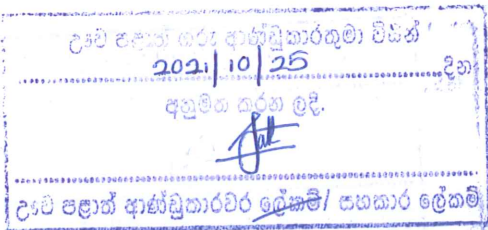 ඌව පළාත් ගරු ආණ්ඩුකාරතුමා විසින්
2021/10/25 දින
අනුමත කරන ලදී.
ඌව පළාත් ආණ්ඩුකාරවර ලේකම්/ සහකාර ලේකම්